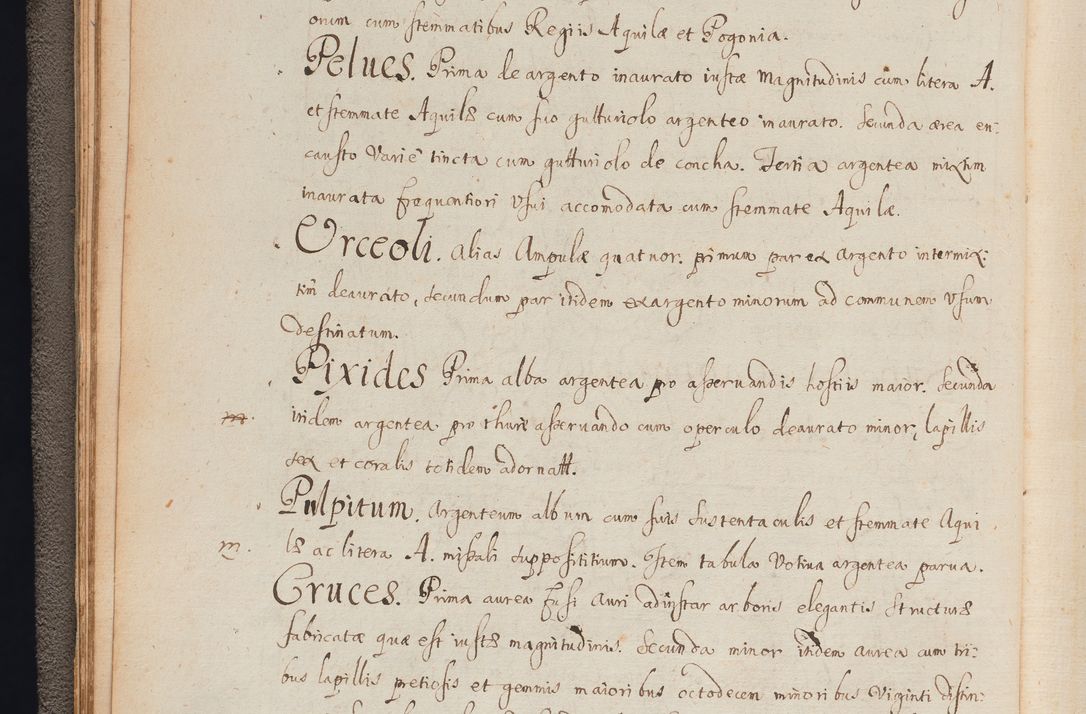 orum cum stemmatibus Regiis Aquilæ et Pogonia.
Pelues. Prima de argento inaurato iustæ magnitudinis cum litera A.
et stemmate Aquilæ cum suo gutturiolo argenteo inaurato. Secunda ærea en:
causto Varie tincta cum gutturiolo de concha. Tertia argentea mixtim
inaurata frequentiori Vsui accomodata cum stemmate Aquilæ.
Vrceoli. alias Ampulæ quatuor. primum par ex Argento intermix:
tim deaurato, secundum par itidem ex argento minorum ad communem Vsum
destinatum.
Pixides Prima alba argentea pro asseruandis hostiis maior. Secunda
itidem argentea pro thure asseruando cum operculo deaurato minor, lapillis
m.
sex et coralis totidem adornatt.
Pulpitum. Argenteum album cum suis sustentaculis et stemmate Aqui
læ ac litera A. missali supposititium. Item tabula Votiua argentea parua.
m.
Cruces. Prima aurea fusi Auri adinstar arboris elegantis Structuræ
fabricatæ quæ est iustæ magnitudinis. Secunda minor itidem aurea cum tri:
bus lapillis pretiosis et gemmis maioribus octodecem minoribus Viginti distin: